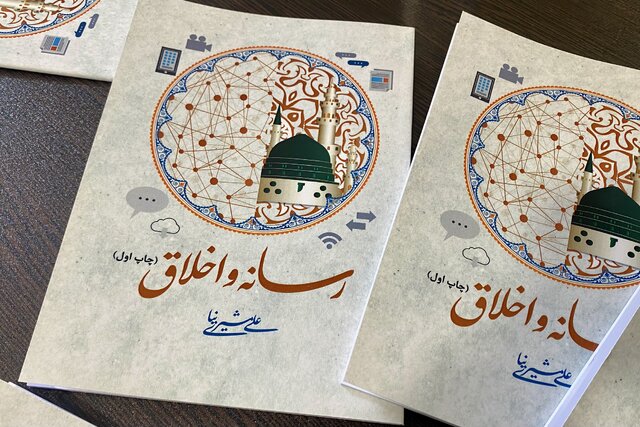 رسانه و اخلاق
(چاپ اول)
علی شیری نیا
رسانه و اخلاق
(چاپ اول)
علی شیری نیا